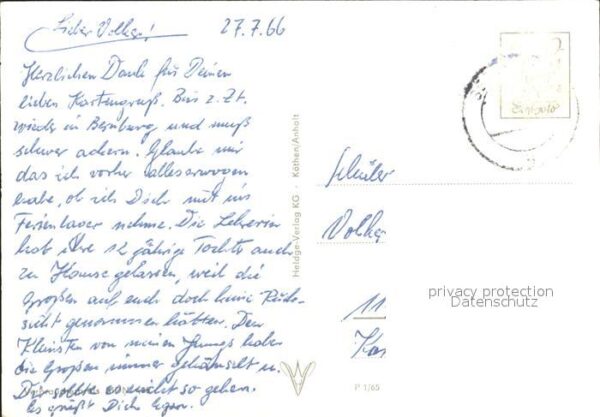 Lieber Volker! 27.7.66
Herzlichen Dank für Deinen
lieben Kartengruß. Bin z. Zt.
wieder in Bernburg und muß
schwer ackern. Glaube mir
daß ich vorher alles erwogen
habe, ob ich Dich mit ins
Ferienlager nehme. Die Lehrerin
hat ihre 12 jährige Tochter auch
zu Hause gelassen, weil die
Großen auf euch doch keine Rück-
sicht genommen hätten. Den
Kleinsten von meinen Jungs haben
die Großen immer gehänselt u.
Dir sollte es nicht so gehen.
Es grüßt Dich
Heldge-Verlag KG · Köthen/Anhalt
Schüler
Volker
11
privacy protection
Datenschutz
P 1/65